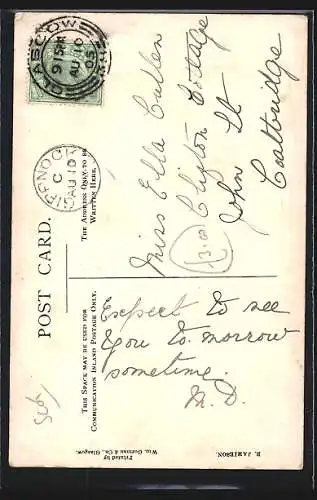 POST CARD.
THIS SPACE MAY BE USED FOR
COMMUNICATION INLAND POSTAGE ONLY.
THE ADDRESS ONLY TO BE
WRITTEN HERE.
GLASGOW
9 15 PM
AU 10
05
GIFFNOCK
C
AU 10
Miss Ella Cullen
Clifton Cottage
John St
Coatbridge
Expect to see
you to-morrow
sometime.
M.D.
Printed by
Wm. Gorman & Co., Glasgow.
R. JAMIESON.